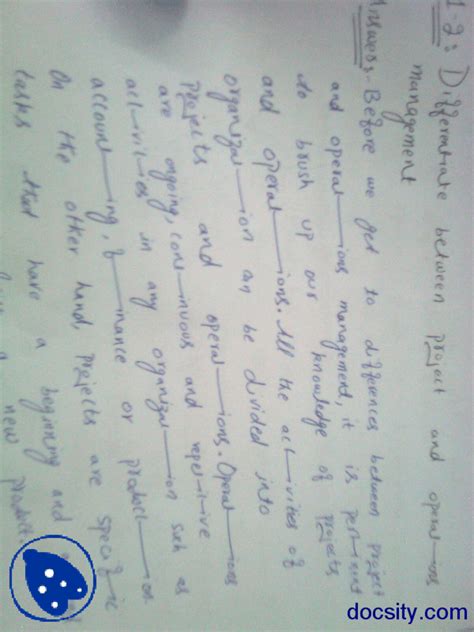 1-2: Differentiate between project and operations
management
Answer:- Before we get to differences between project
and operations management, it is pertinent
to brush up our knowledge of projects
and operations. All the activities of
organization can be divided into
projects and operations. Operations
are ongoing, continuous and repetitive
activities in any organization such as
accounting, finance or production.
On the other hand, projects are specific
tasks that have a beginning and
a new product
docsity.com